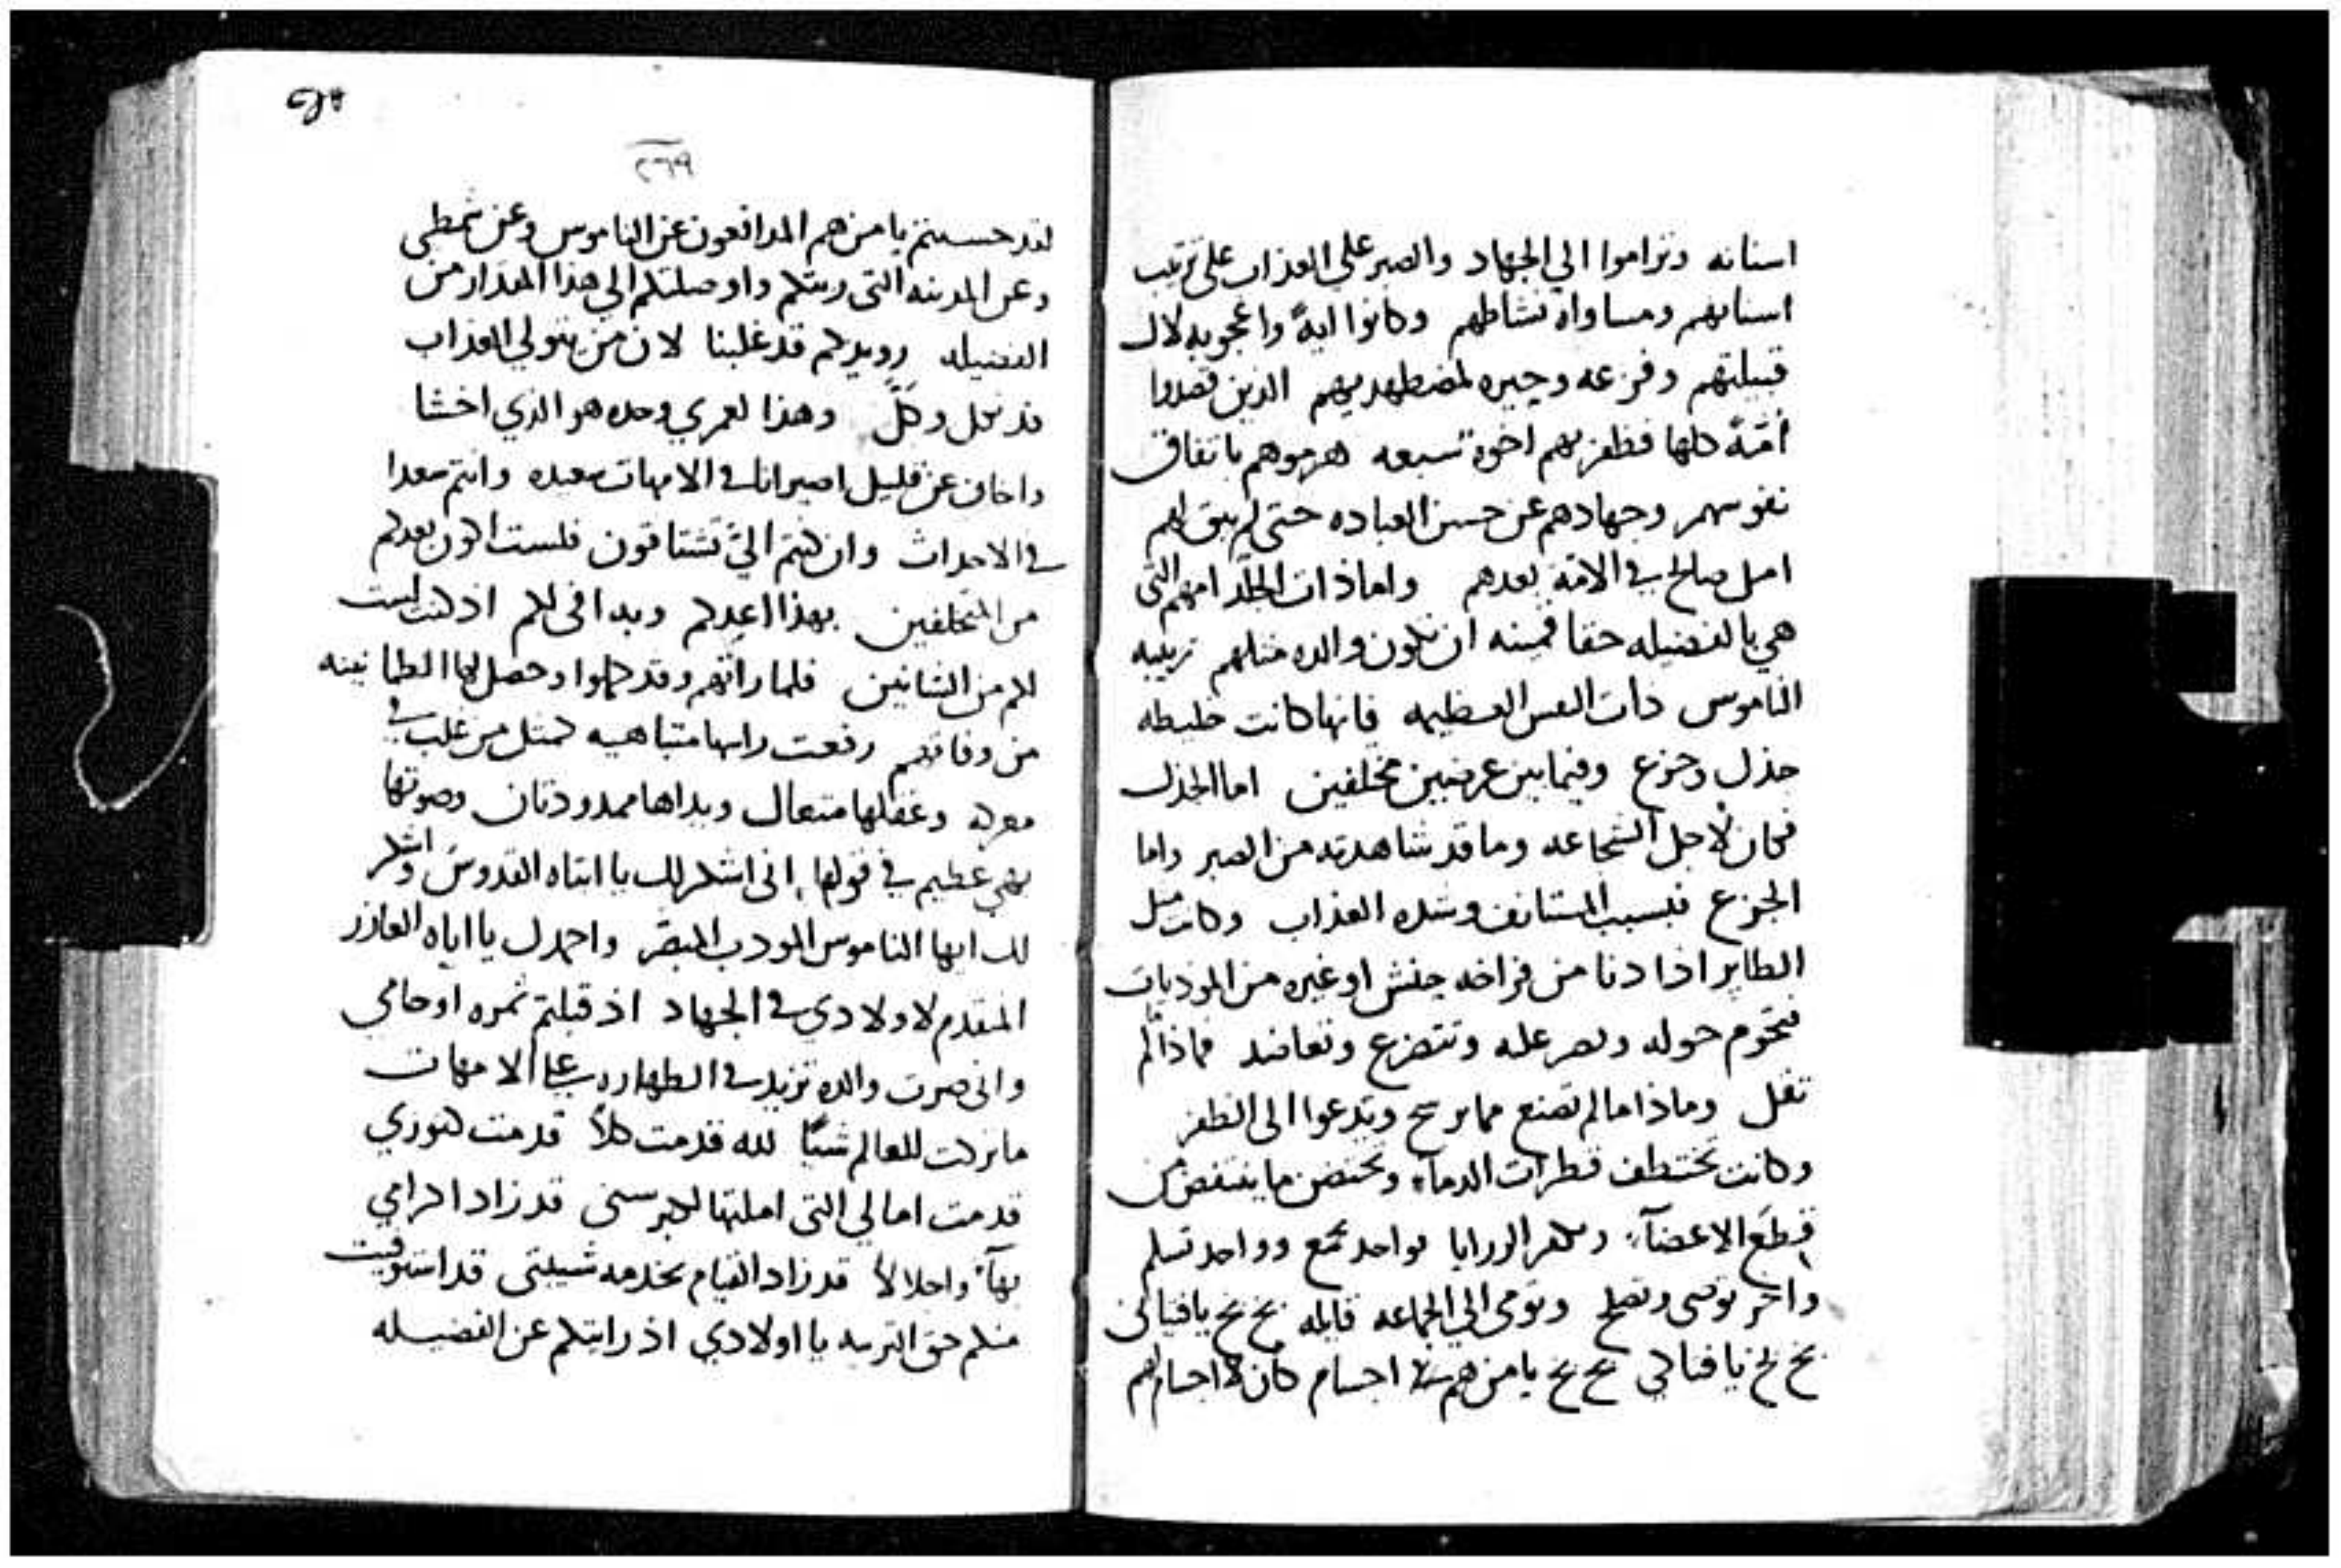 اسنانه وتراموا الي الجهاد والصبر علي العذاب علي ترتيب
اسنانهم ومساواة نشاطهم وكانوا ايةً واعجوبه لال
قبيلتهم وفزعه وحيره لمضطهديهم الذين قصدوا
أمّةً كلها فظفر بهم اخوة سبعه هزموهم باتفاق
نفوسهم وجهادهم عن حسن العباده حتى لم يبق لهم
امل صالح في الامة بعدهم واما ذات الجلَد امهم التي
هي بالفضيله حقا قمينه ان تكون والده مثلهم تربيه
الناموس ذات النفس العظيمه فانها كانت خليطه
جذل وجزع وفيما بين عرضين مختلفين اما الجذل
فكان لاجل الشجاعه وما قد شاهدته من الصبر واما
الجزع فبسبب المستانف وشده العذاب وكانت مثل
الطاير اذا دنا من فراخه حنش او غيره من الموذيات
فتحوم حوله وتصر عليه وتتضرع وتعاضد فماذا لم
تقل وماذا ما لم تصنع مما يرسح ويدعوا الى الظفر
وكانت تختطف قطرات الدماء وتحتضن ما ينتفض من
قِطَع الاعضآء وتكرم الزرايا بواحد تجمع وواحد تسلم
واخر توصى وتصلح وتومى الي الجماعه قايله بخ بخ يا فتيانى
بخ بخ يا فتيانى بخ بخ يا من هم في اجسام كأن لا اجسام لهم
٢٦٩
لقد حسبتم يا من هم المدافعون عن الناموس وعن شمطى
وعن المدينه التى ربتكم واوصلتكم الى هذا المقدار من
الفضيله رويدكم قد غلبنا لان من يتولي العذاب
قد نكل وكَلَّ وهذا لعمري وحده هو الذي اخشا
واخاف عن قليل اصير انا في الامهات سعيده وانتم سعدا
في الاحداث وان كنتم اليّ تشتاقون فلست اكون بعدكم
من المتخلفين بهذا اعدكم وبه افى لكم اذ كنت لست
لكم من الشانيين فلما راتهم وقد كملوا وحصل لها الطمانينه
من وفاتهم رفعت راسها متباهيه كمثل من غلب في
معركه وعقلها متعال ويداها ممدودتان وصوتها
بهي عظيم في قولها انى اشكر لك يا ابتاه القدوس واشكر
لك ايها الناموس المودب المبصّر واحمدك يا اباه العازر
المتقدم لاولادي في الجهاد اذ قبلتم ثمره اوجاعي
وانى صرت والده تزيد في الطهاره على الامهات
ما تركت للعالم شيًا لله قدمت كلاً قدمت كنوزي
قدمت امالي التى املتها لكبر سنى قد زاد اكرامي
بهآء واجلالا قد زاد القيام بخدمه شيبتى قد استوفيت
منكم حق التربيه يا اولادي اذ رايتكم عن الفضيله